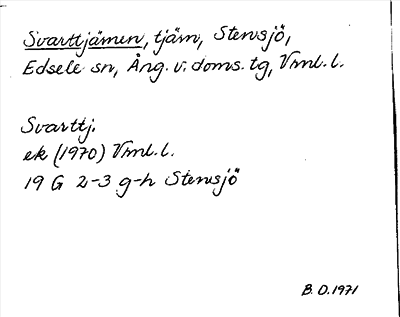 Svarttjärnen, tjärn, Stensjö,
Edsele sn, Ång. v. doms. tg, Vrnl. l.
Svarttj.
ek (1970) Vrnl. l.
19 G 2-3 g-h Stensjö
B.O. 1971